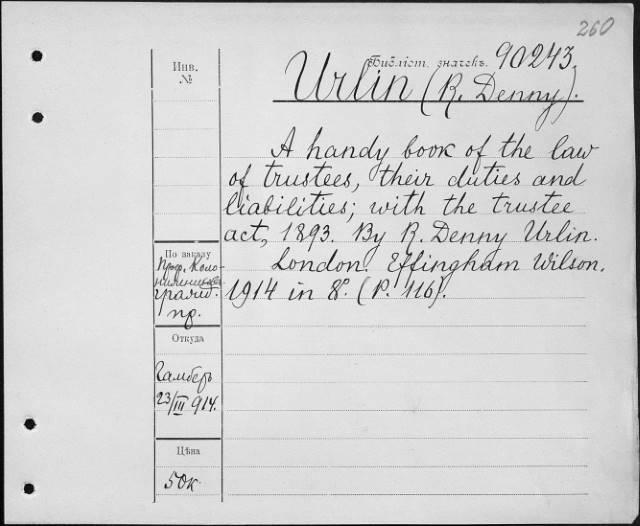 260
Инв.
№
Библіот. значекъ. 90243.
Urlin (R. Denny).
A handy book of the law
of trustees, their duties and
liabilities; with the trustee
act, 1893. By R. Denny Urlin.
London. Effingham Wilson.
1914 in 8°. (P. 116).
По заказу
Проф.
гражд.
пр.
Откуда
Гамберъ
23/III 914.
Цѣна
50к